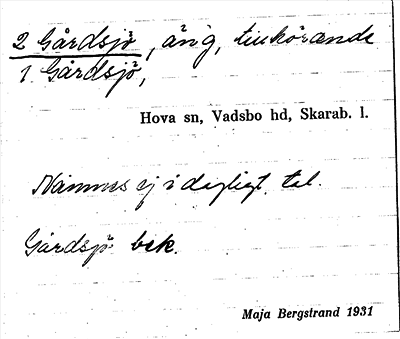 2 Gårdsjö, äng, tillhörande
1 Gårdsjö,
Hova sn, Vadsbo hd, Skarab. l.
Nämnes ej i dagligt tal.
Gårdsjö bek.
Maja Bergstrand 1931